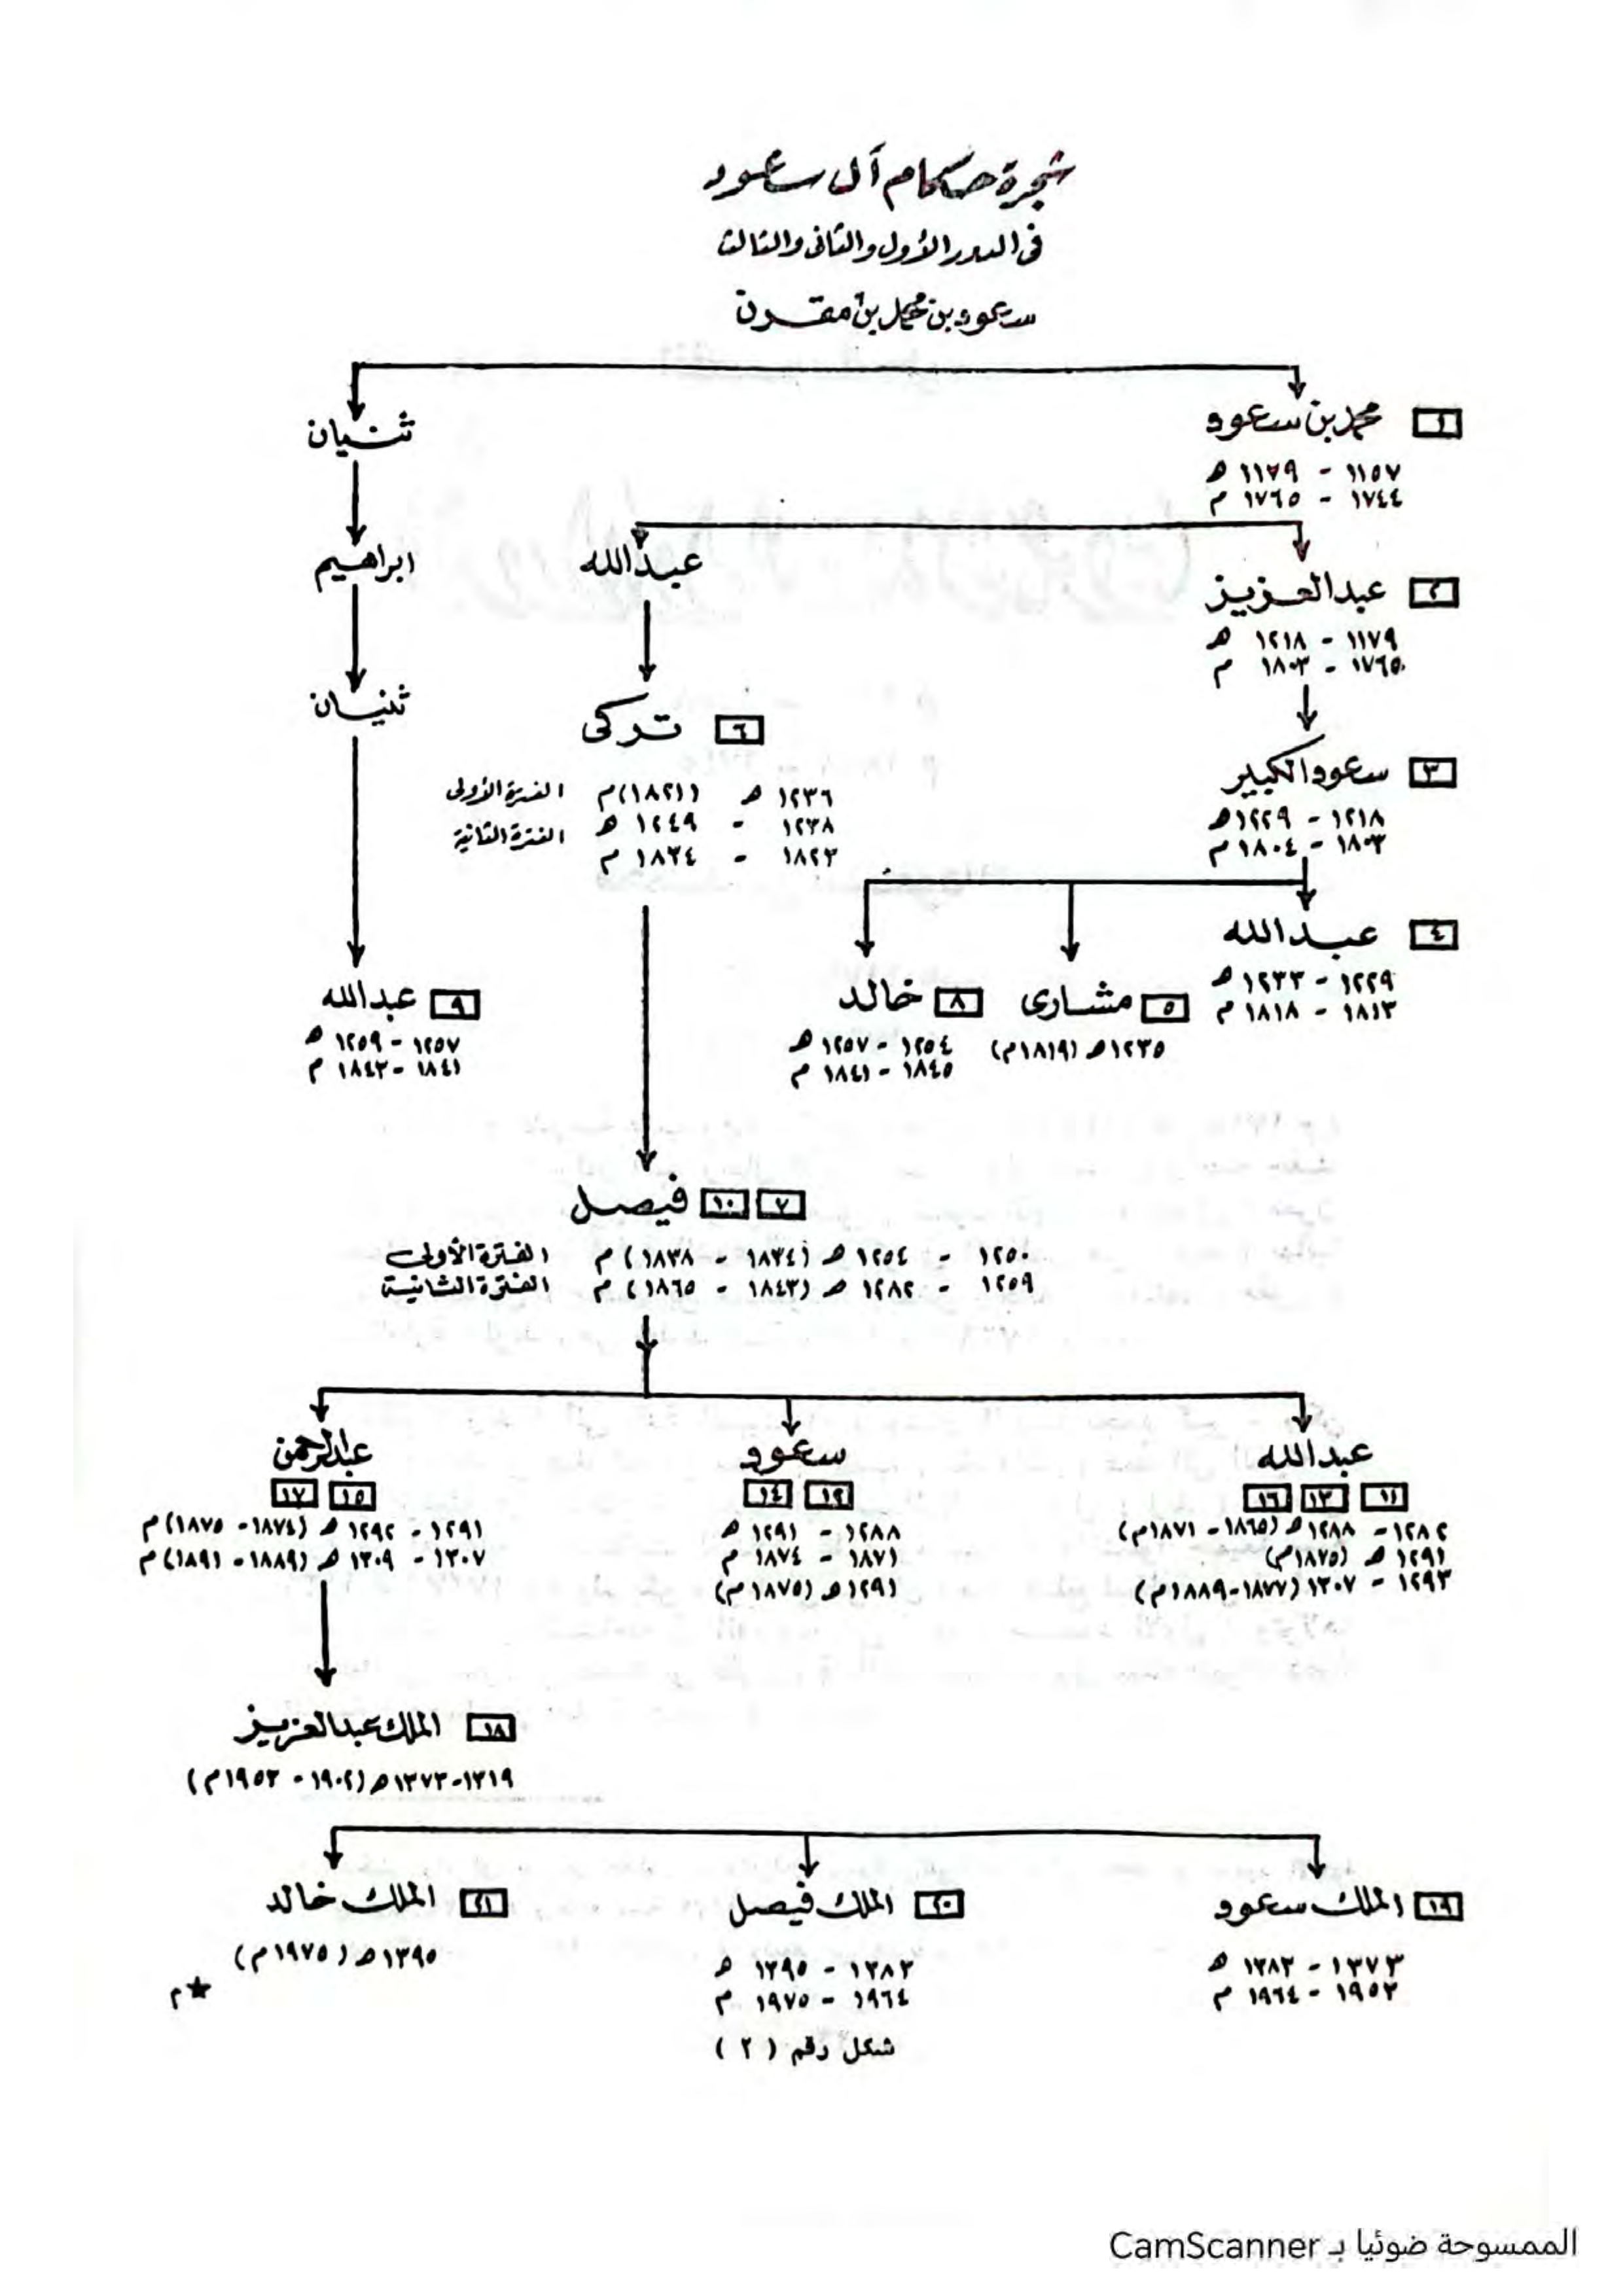 شجرة حكام آل سعود
فى الدور الأول والثانى والثالث
سعود بن محمد بن مقرن
١ محمد بن سعود
١١٥٧ - ١١٧٩ هـ
١٧٤٤ - ١٧٦٥ م
ثنيان
٢ عبدالعزيز
١١٧٩ - ١٢١٨ هـ
١٧٦٥ - ١٨٠٣ م
عبدالله
ابراهيم
ثنيان
٦ تركى
١٢٣٦ هـ (١٨٢١) م الفترة الأولى
١٢٣٨ - ١٢٤٩ هـ الفترة الثانية
١٨٢٣ - ١٨٣٤ م
٣ سعود الكبير
١٢١٨ - ١٢٢٩ هـ
١٨٠٣ - ١٨٠٤ م
٤ عبدالله
١٢٢٩ - ١٢٣٣ هـ
١٨١٣ - ١٨١٨ م
٥ مشارى
١٢٣٥ هـ (١٨١٩م)
٨ خالد
١٢٥٤ - ١٢٥٧ هـ
١٨٤٥ - ١٨٤١ م
٩ عبدالله
١٢٥٧ - ١٢٥٩ هـ
١٨٤١ - ١٨٤٣ م
٧ ١٠ فيصل
١٢٥٠ - ١٢٥٤ هـ (١٨٣٤ - ١٨٣٨) م الفترة الأولى
١٢٥٩ - ١٢٨٢ هـ (١٨٤٣ - ١٨٦٥) م الفترة الثانية
عبدالله
١١ ١٣ ١٦
١٢٨٢ - ١٢٨٨ هـ (١٨٦٥ - ١٨٧١م)
١٢٩١ هـ (١٨٧٥م)
١٢٩٣ - ١٣٠٧ (١٨٧٧-١٨٨٩م)
سعود
١٢ ١٤
١٢٨٨ - ١٢٩١ هـ
١٨٧١ - ١٨٧٤ م
١٢٩١ هـ (١٨٧٥م)
عبدالرحمن
١٥ ١٧
١٢٩١ - ١٢٩٢ هـ (١٨٧٤ - ١٨٧٥) م
١٣٠٧ - ١٣٠٩ هـ (١٨٨٩ - ١٨٩١) م
١٨ الملك عبدالعزيز
١٣١٩-١٣٧٣ هـ (١٩٠٢ - ١٩٥٣م)
١٩ الملك سعود
١٣٧٣ - ١٣٨٣ هـ
١٩٥٣ - ١٩٦٤ م
٢٠ الملك فيصل
١٣٨٣ - ١٣٩٥ هـ
١٩٦٤ - ١٩٧٥ م
٢١ الملك خالد
١٣٩٥ هـ (١٩٧٥م)
★ م
شكل رقم (٢)
الممسوحة ضوئيا بـ CamScanner